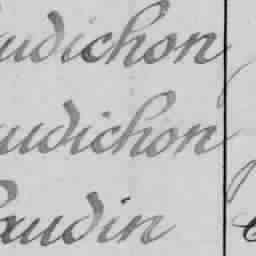 audichon
audichon
Gaudin